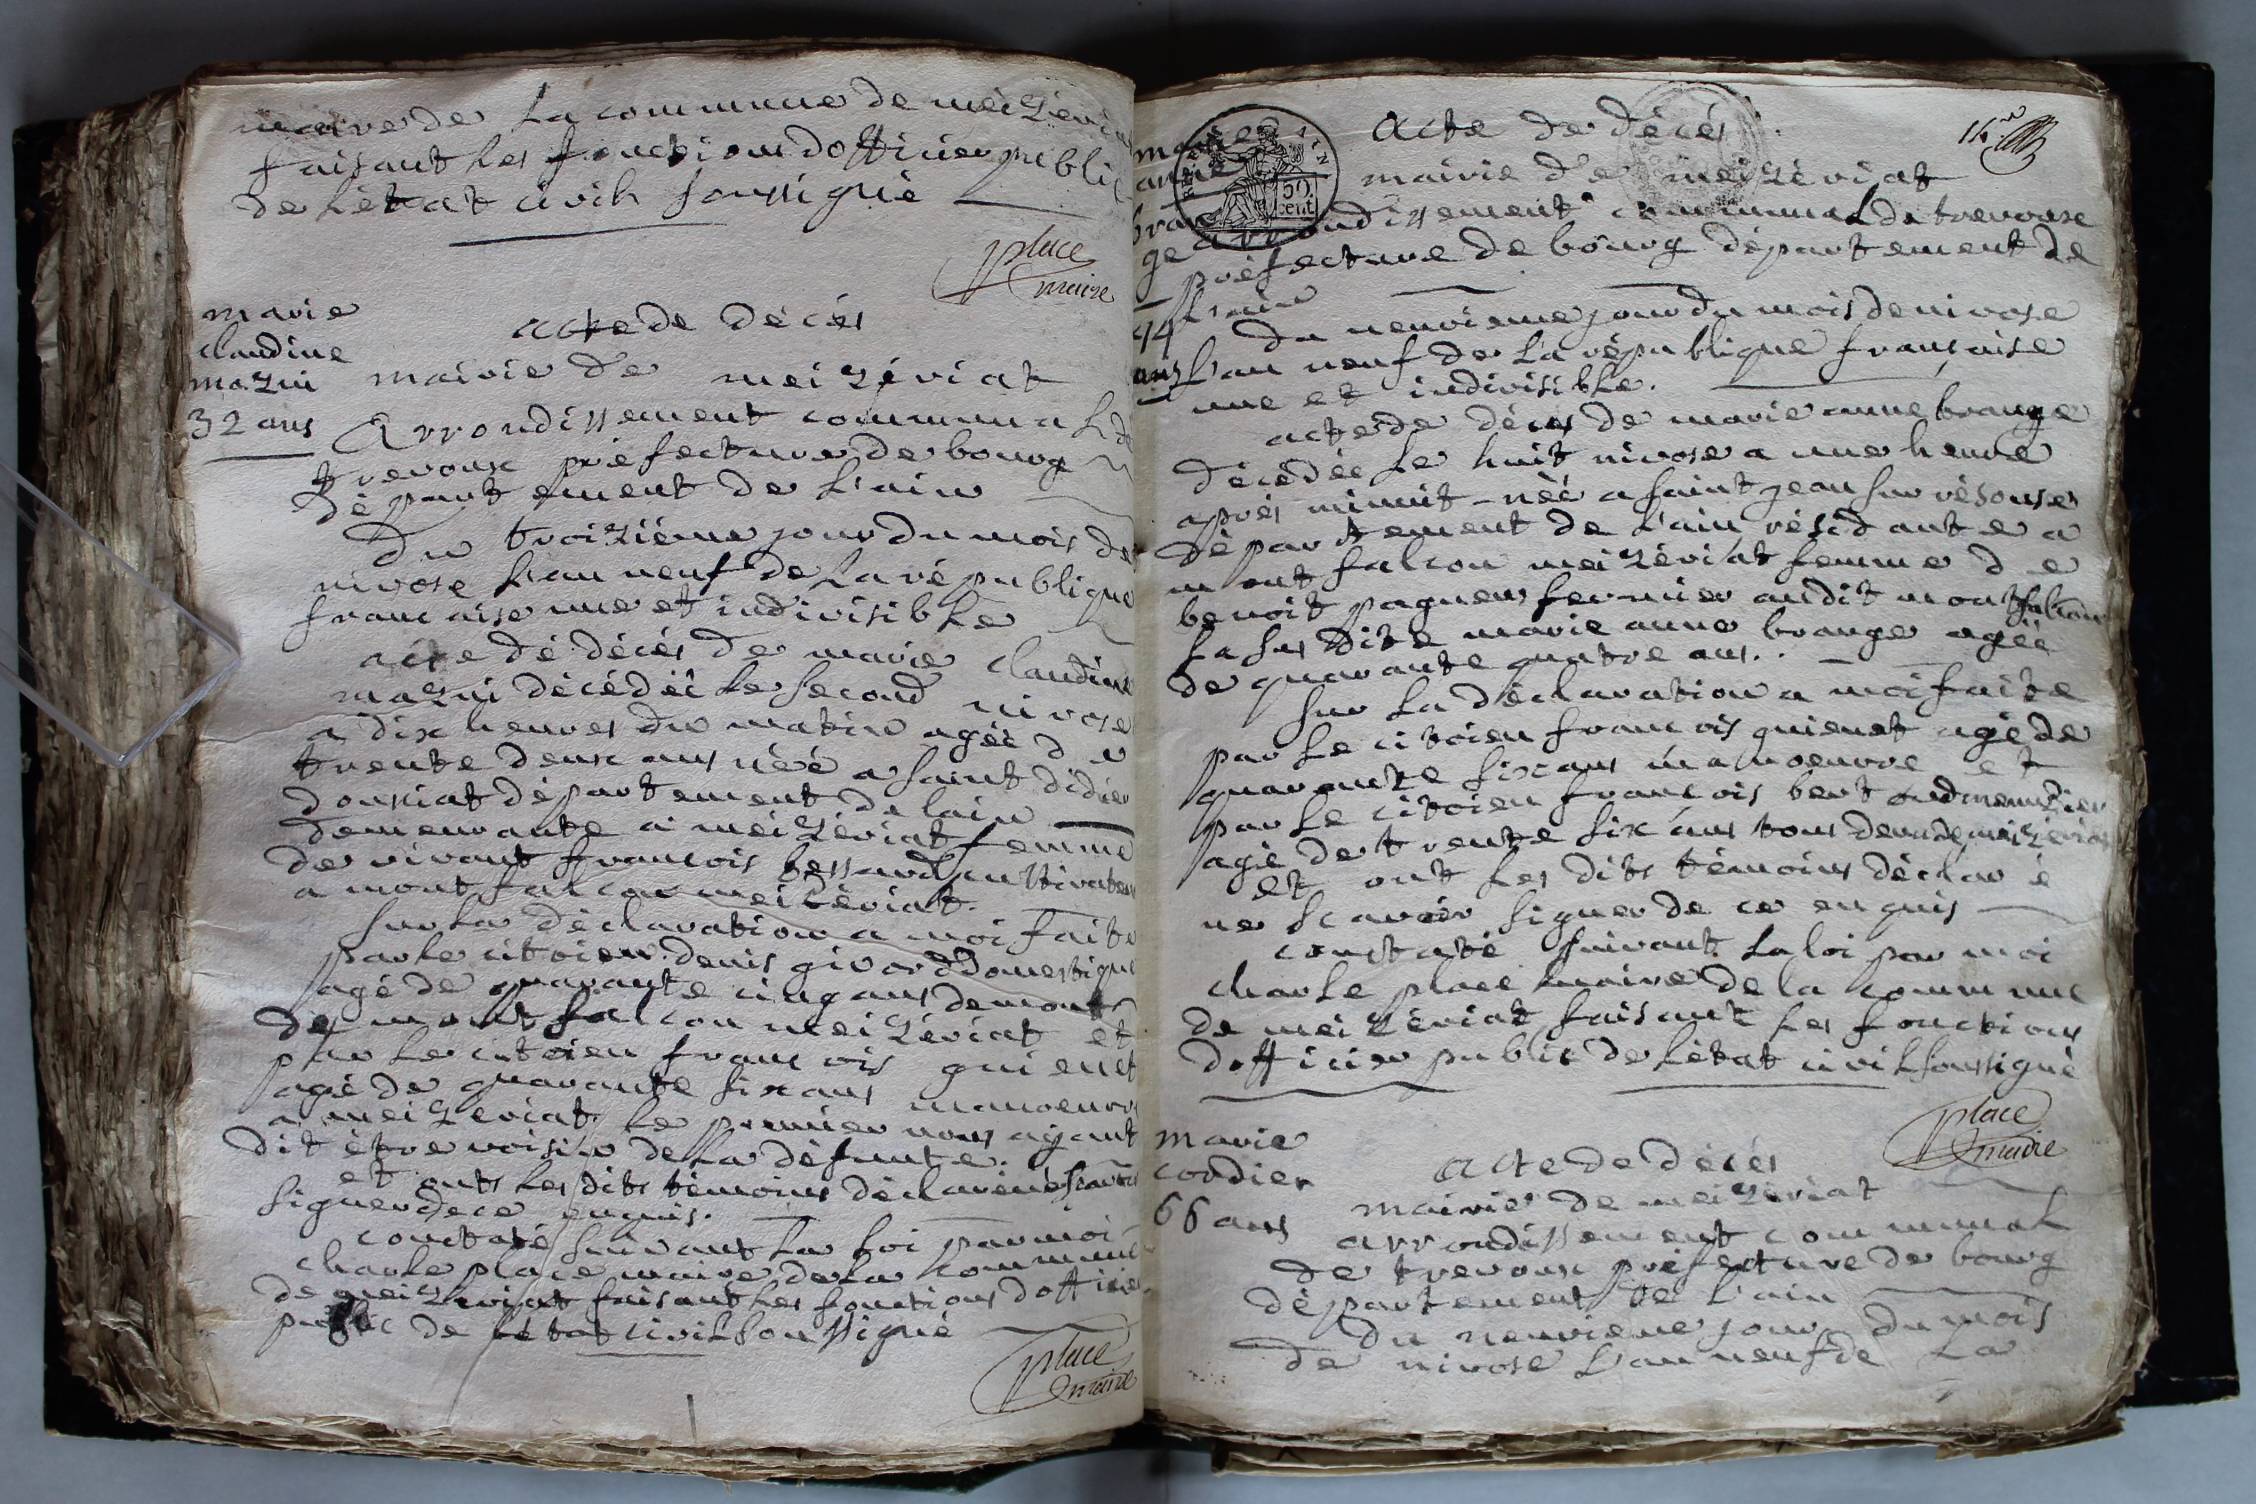 maire de la commune de meizériat
faisant les fonctions dofficier public
de létat civil soussigné
place
maire
marie
claudine
mazui
32 ans
acte de décés
mairie de meizériat
Arrondissement communal de
trevoux préfecture de bourg
département de l'ain
du troiziéme jour du mois de
nivose l'an neuf de la république
francaise une et indivisible
acte de décés de marie claudine
mazui décédéé le second nivose
a dix heures du matin agéé de
trente deux ans néé a saint didier
doussiat département de lain
demeurante a meizériat femme
de vivant francois bessard cultivateur
a montfalcon meizériat.
sur la déclaration a moi faite
par le citoien denis givord domestique
agé de quarante cinq ans demont
de montfalcon meizériat et
par le citoien francois guienet
agé de quarante six ans manoeuvre
a meizeriat. le premier nous ayant
dit être voisin de la défunte.
et onts les dits témoins déclaré ne scavoir
signer de ce enquis.
constaté suivant la loi par moi
charle place maire de la commune
de meizeriat faisant les fonctions dofficier
public de létat civil soussigné
place
maire
16
marie
anne
bran
ge
44
ans
REP FRA
AIN
50
cent
acte de décés
mairie de meizériat
arrondissement communal de trevoux
préfecture de bourg département de
l'ain
du neuvieme jour du mois de nivose
l'an neuf de la république française
une et indivisible.
acte de déces de marie anne brange
décédéé le huit nivose a une heure
aprés minuit - néé a saint jean sur résouse
département de l'ain résidante a
montfalcon meizériat femme de
benoit paguers fermier audit montfalcon
la sus dite marie anne brange agéé
de quarante quatre ans.
sur la déclaration a moi faite
par le citoien francois guienet agé de
quarante six ans manoeuvre et
par le citoien francois bert
agé de trente six ans tous deux de meizériat
et ont les dits témoins déclaré
ne scavoir signer de ce enquis
constaté suivant la loi par moi
charle place maire de la commune
de meizériat faisant les fonctions
dofficier public de létat civil soussigné
place
maire
marie
cordier
66 ans
acte de décés
mairie de meizériat
arrondissement communal
de trevoux préfecture de bourg
département de l'ain
du neuvieme jour du mois
de nivose l'an neuf de la